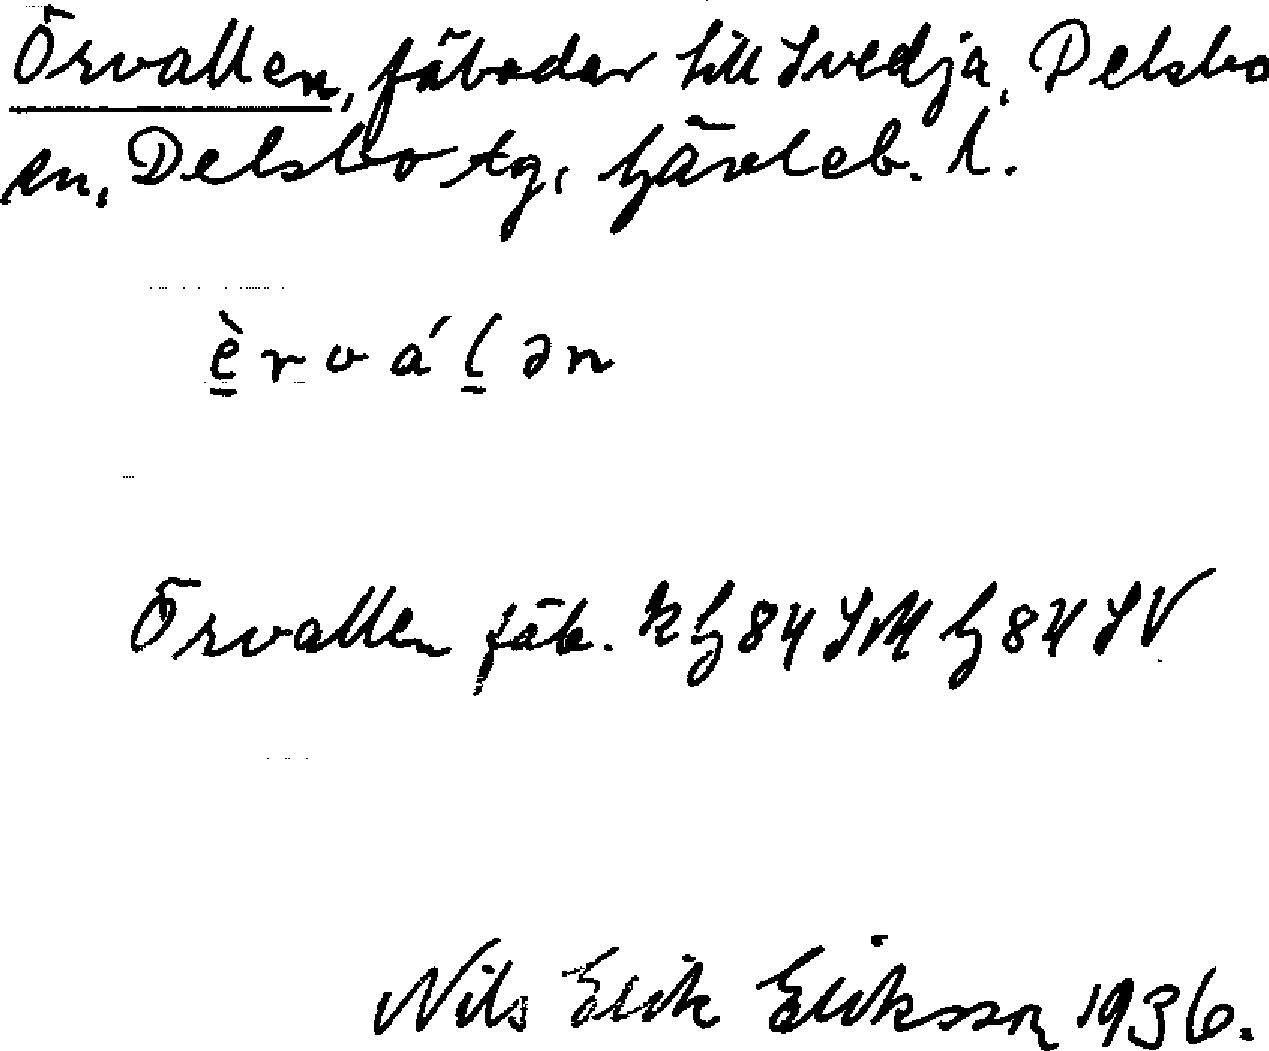 Örvallen, fäbodar till Svedja, Delsbo
sn, Delsbo tg, Gävleb. l.
è̱ r v á ḻ ə n
Örvallen fäb. k G 84 SM G 84 SV
Nils Erik Eriksson 1936.